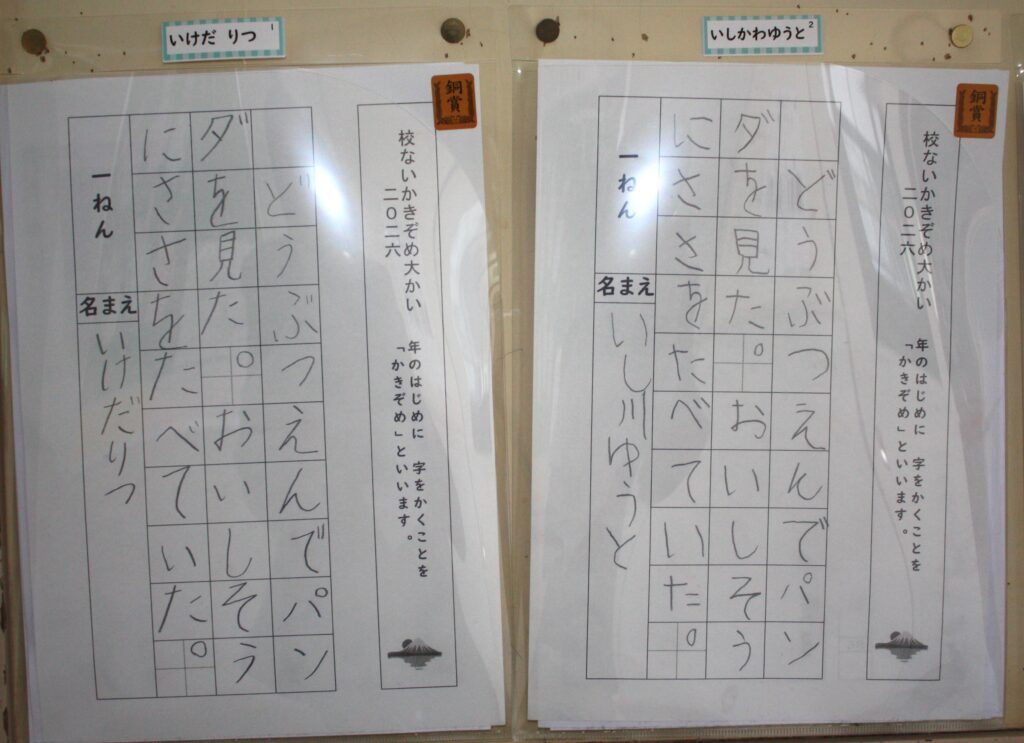 いけだ りつ 1
銅賞
校ないかきぞめ大かい
二〇二六
年のはじめに 字をかくことを
「かきぞめ」といいます。
どうぶつえんでパン
ダを見た。おいしそう
にささをたべていた。
一ねん
名まえ
いけだりつ
いしかわゆうと 2
銅賞
校ないかきぞめ大かい
二〇二六
年のはじめに 字をかくことを
「かきぞめ」といいます。
どうぶつえんでパン
ダを見た。おいしそう
にささをたべていた。
一ねん
名まえ
いし川ゆうと